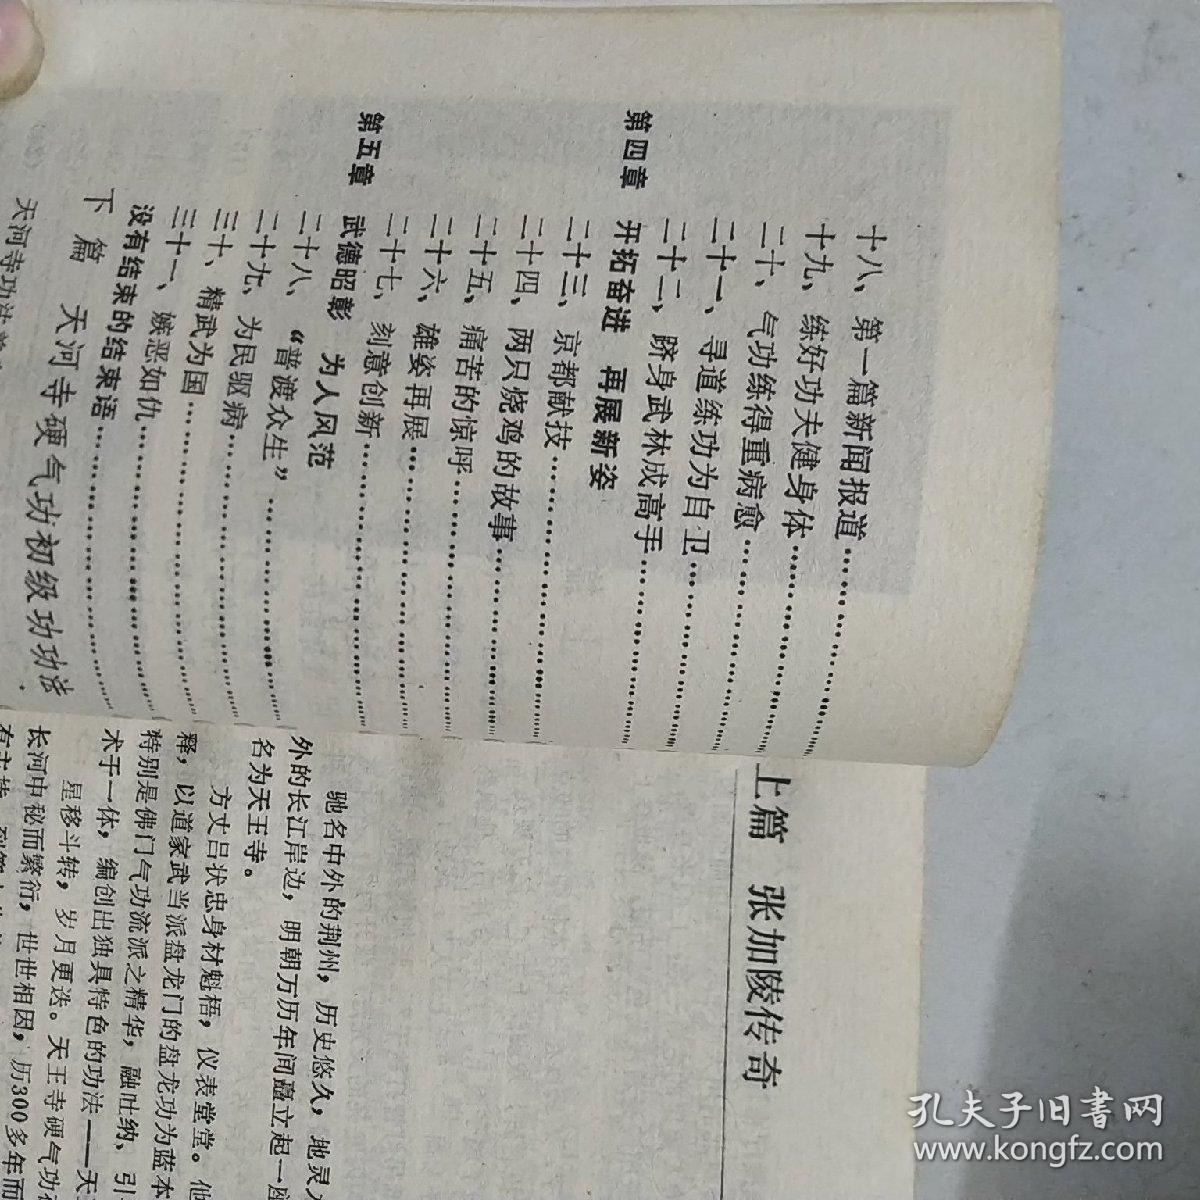 十八、第一篇新闻报道…………………
十九、练好功夫健身体…………………
二十、气功练得重病愈…………………
二十一、寻道练功为自卫…………………
二十二、跻身武林成高手…………………
第四章 开拓奋进 再展新姿
二十三、京都献技…………………
二十四、两只烧鸡的故事…………………
二十五、痛苦的惊呼…………………
二十六、雄姿再展…………………
二十七、刻意创新…………………
第五章 武德昭彰 为人风范
二十八、“普渡众生”…………………
二十九、为民驱病…………………
三十、精武为国…………………
三十一、嫉恶如仇…………………
没有结束的结束语…………………
下篇 天河寺硬气功初级功功法
天河寺功法
上篇 张加陵传奇
驰名中外的荆州，历史悠久，地灵
外的长江岸边，明朝万历年间矗立起一座
名为天王寺。
方丈吕状忠身材魁梧，仪表堂堂。他
释，以道家武当派盘龙门的盘龙功为蓝本
特别是佛门气功流派之精华，融吐纳、引
术于一体，编创出独具特色的功法——天
星移斗转，岁月更迭。天王寺硬气功
长河中秘而繁衍，世世相因，历300多年而
孔夫子旧书网
www.kongfz.com